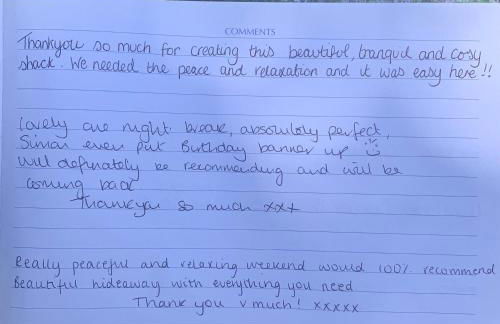 COMMENTS
Thankyou so much for creating this beautiful, tranquil and cosy
shack. We needed the peace and relaxation and it was easy here!!
Lovely one night break, absolutely perfect,
Simon even put Birthday banner up
will definately be recommending and will be
coming back
Thankyou so much xxx
Really peaceful and relaxing weekend would 100% recommend
Beautiful hideaway with everything you need
Thank you v much! xxxxx